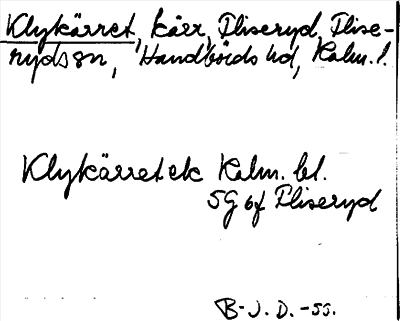 Klykärret, kärr, Fliseryd, Flise-
ryds sn, Handbörds hd, Kalm. l.
Klykärret ek Kalm. bl.
5G 6f Fliseryd
B-J. D. -55.